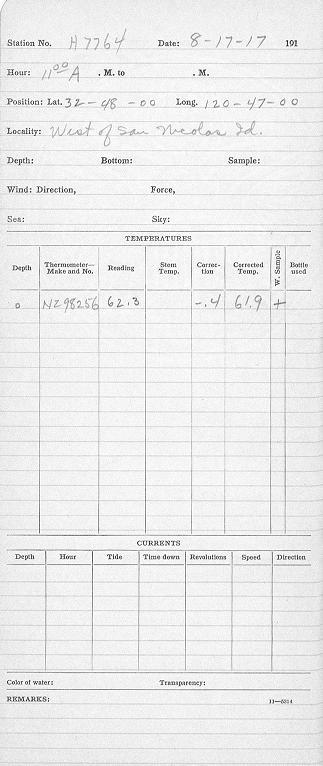 Station No. H 7764 Date: 8-17-17 191
Hour: 11 00 A . M. to . M.
Position: Lat. 32-48-00 Long. 120-47-00
Locality: West of San Nicolas Id.
Depth: Bottom: Sample:
Wind: Direction, Force,
Sea: Sky:
TEMPERATURES
Depth Thermometer—Make and No. Reading Stem Temp. Correc-tion Corrected Temp. W. Sample Bottle used
0 NZ98256 62.3 -.4 61.9 +
CURRENTS
Depth Hour Tide Time down Revolutions Speed Direction
Color of water: Transparency:
REMARKS: 11—5314